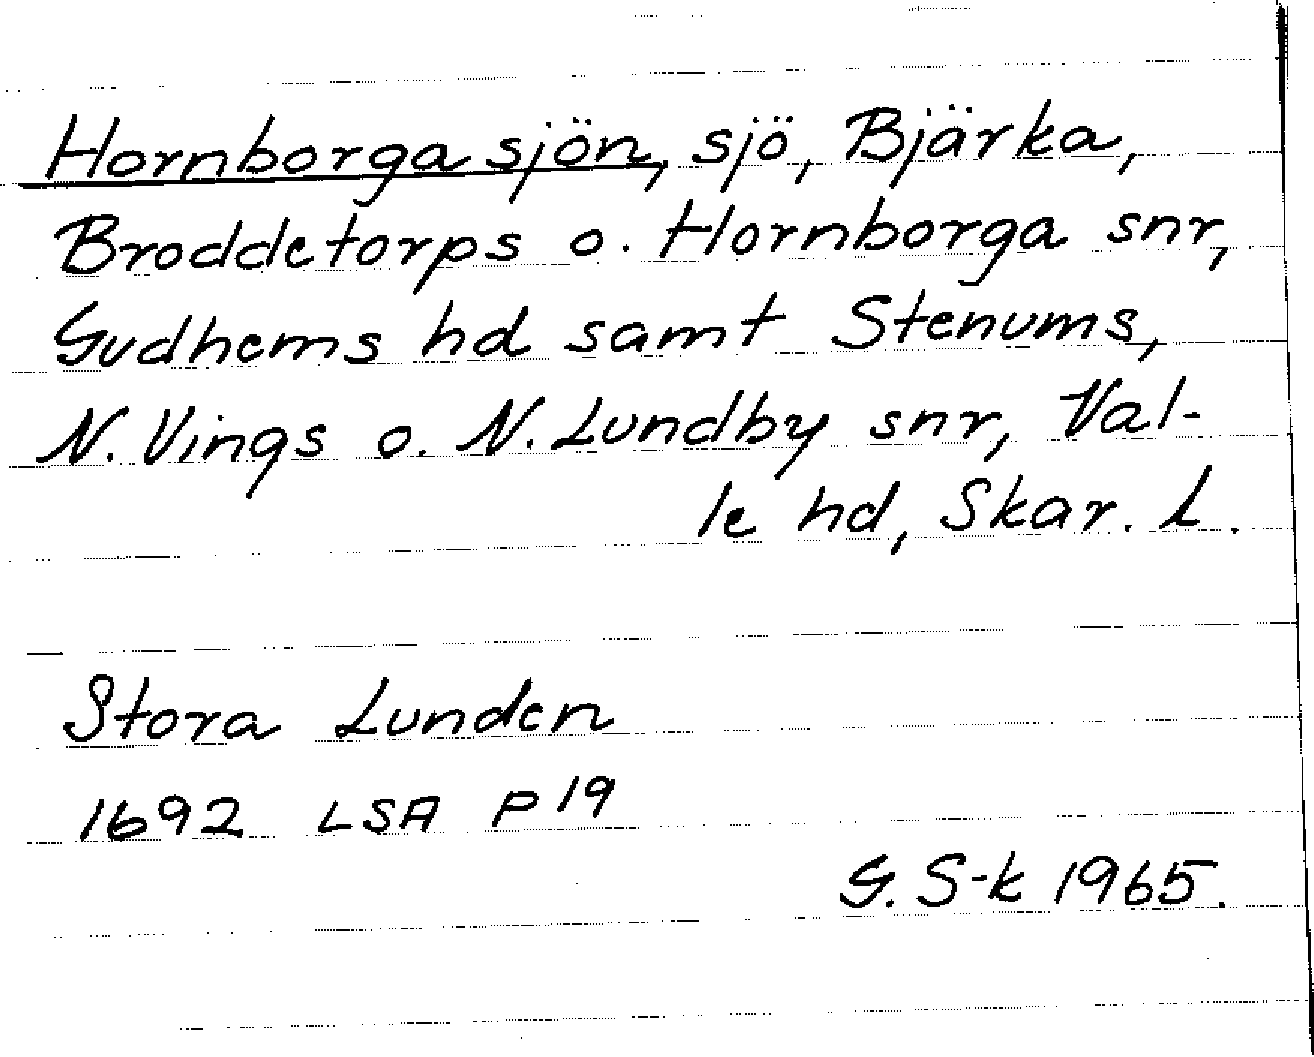 Hornborgasjön, sjö, Bjärka,
Broddetorps o. Hornborga snr,
Gudhems hd samt Stenums,
N. Vings o. N. Lundby snr, Val-
le hd, Skar. L.
Stora Lunden
1692 LSA P 19
G. S-k 1965.